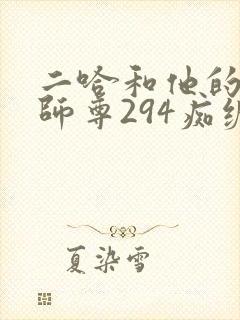 二哈和他的
師尊294痴缠
夏染雪